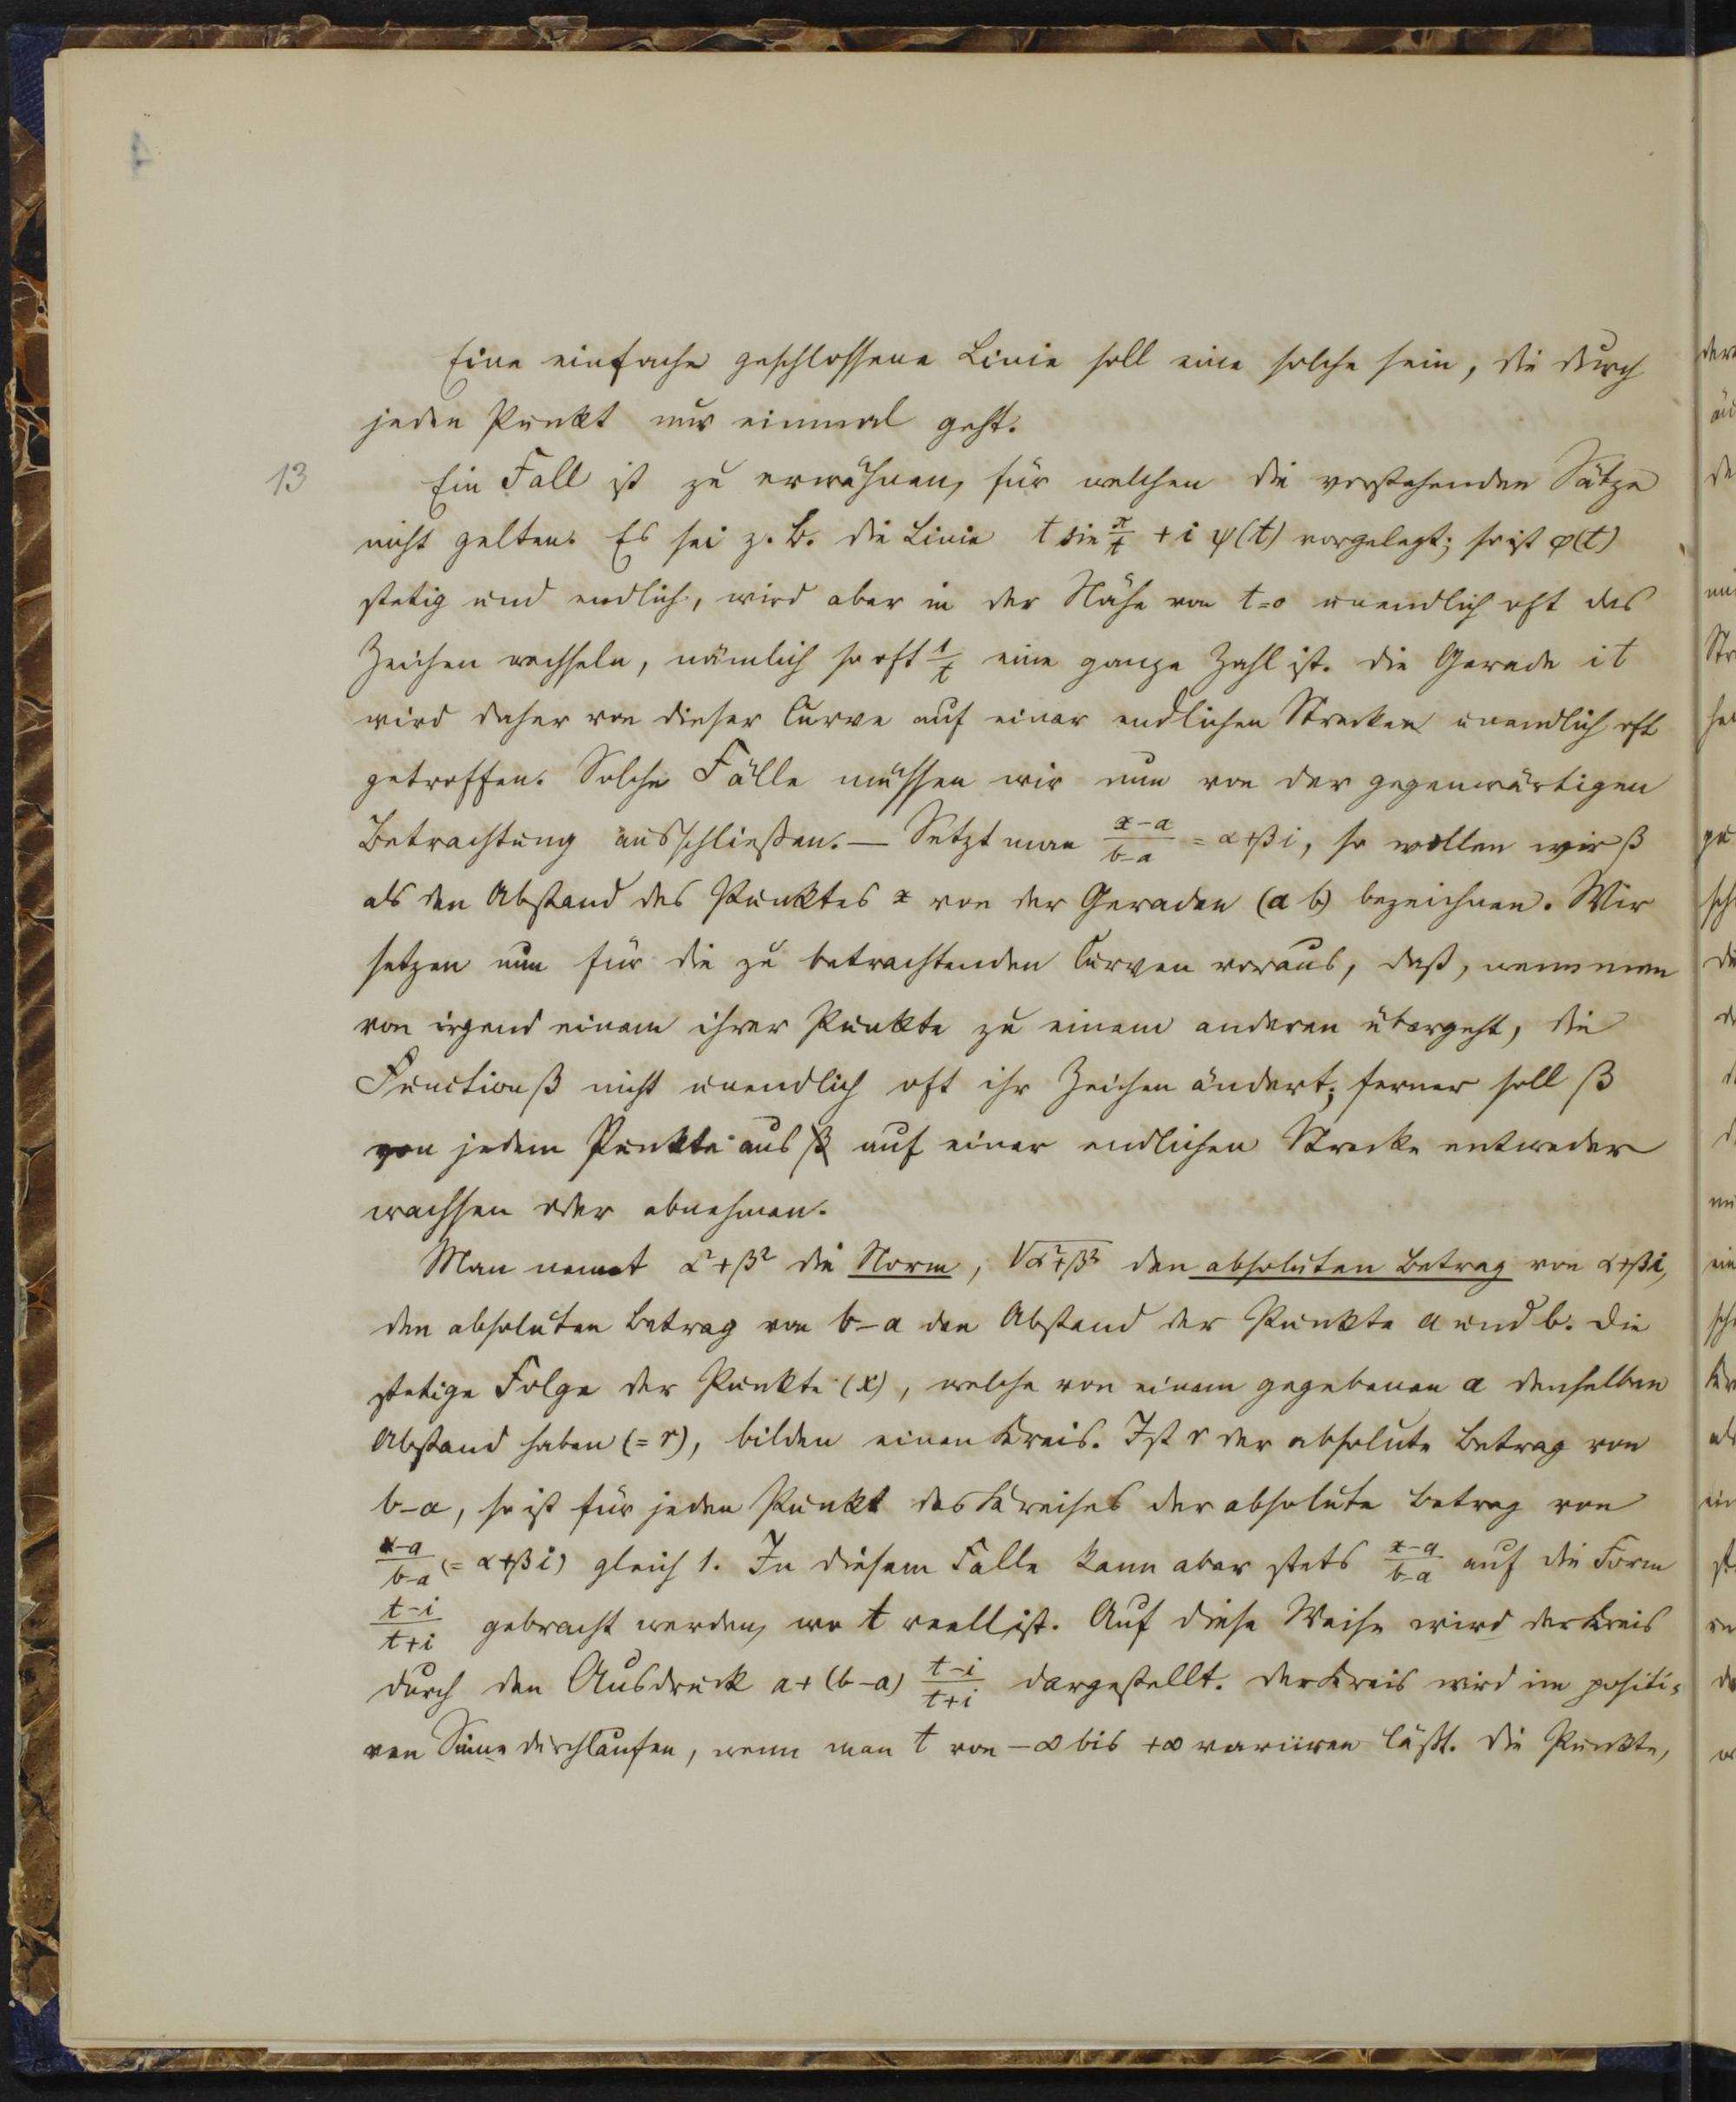 Eine einfache geschlossene Linie soll eine solche sein, die durch
jeden Punkt nur einmal geht.
13
Ein Fall ist zu erwähnen, für welchen die vorstehenden Sätze
nicht gelten. Es sei z. B. die Linie t sin π/t + i ψ(t) vorgelegt; so ist φ(t)
stetig und endlich, wird aber in der Nähe von t=0 unendlich oft das
Zeichen wechseln, nämlich so oft 1/t eine ganze Zahl ist. Die Gerade it
wird daher von dieser Curve auf einer endlichen Strecken unendlich oft
getroffen. Solche Fälle müssen wir nun von der gegenwärtigen
Betrachtung ausschließen. — Setzt man (x-a)/(b-a) = α+βi, so wollen wir β
als den Abstand des Punktes x von der Geraden (a b) bezeichnen. Wir
setzen nun für die zu betrachtenden Curven voraus, daß, wenn man
von irgend einem ihrer Punkte zu einem anderen übergeht, die
Function β nicht unendlich oft ihr Zeichen ändert; ferner soll β
von jedem Punkte aus auf einer endlichen Strecke entweder
wachsen oder abnehmen.
Man nennt α²+β² die Norm, √α²+β² den absoluten Betrag von α+βi,
den absoluten Betrag von b-a den Abstand der Punkte a und b. Die
stetige Folge der Punkte (x), welche von einem gegebenen a denselben
Abstand haben (=r), bilden einen Kreis. Ist r der absolute Betrag von
b-a, so ist für jeden Punkt des Kreises der absolute Betrag von
(x-a)/(b-a) (= α+βi) gleich 1. In diesem Falle kann aber stets (x-a)/(b-a) auf die Form
(t-i)/(t+i) gebracht werden, wo t reell ist. Auf diese Weise wird der Kreis
durch den Ausdruck a+(b-a) (t-i)/(t+i) dargestellt. Der Kreis wird im positi-
ven Sinne durchlaufen, wenn man t von -∞ bis +∞ variiren läßt. Die Punkte,